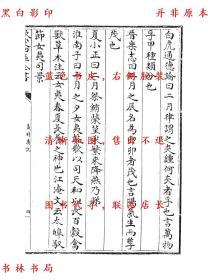 黑白影印 并非原本
白虎通德論曰二月律謂之夾鍾何夾者孚也言萬物
孚甲種類分也
晉樂志曰二月之辰名為卯卯者茂也言陽氣生而孳
茂也
夏小正曰二月祭鮪榮堇采蘩來降燕乃睇
淮南子曰二月之夕女夷鼓歌以司天和以長百穀禽
獸草木註云女夷春夏長養之神也江淹文云太皞馭
節女夷司景
书林书局